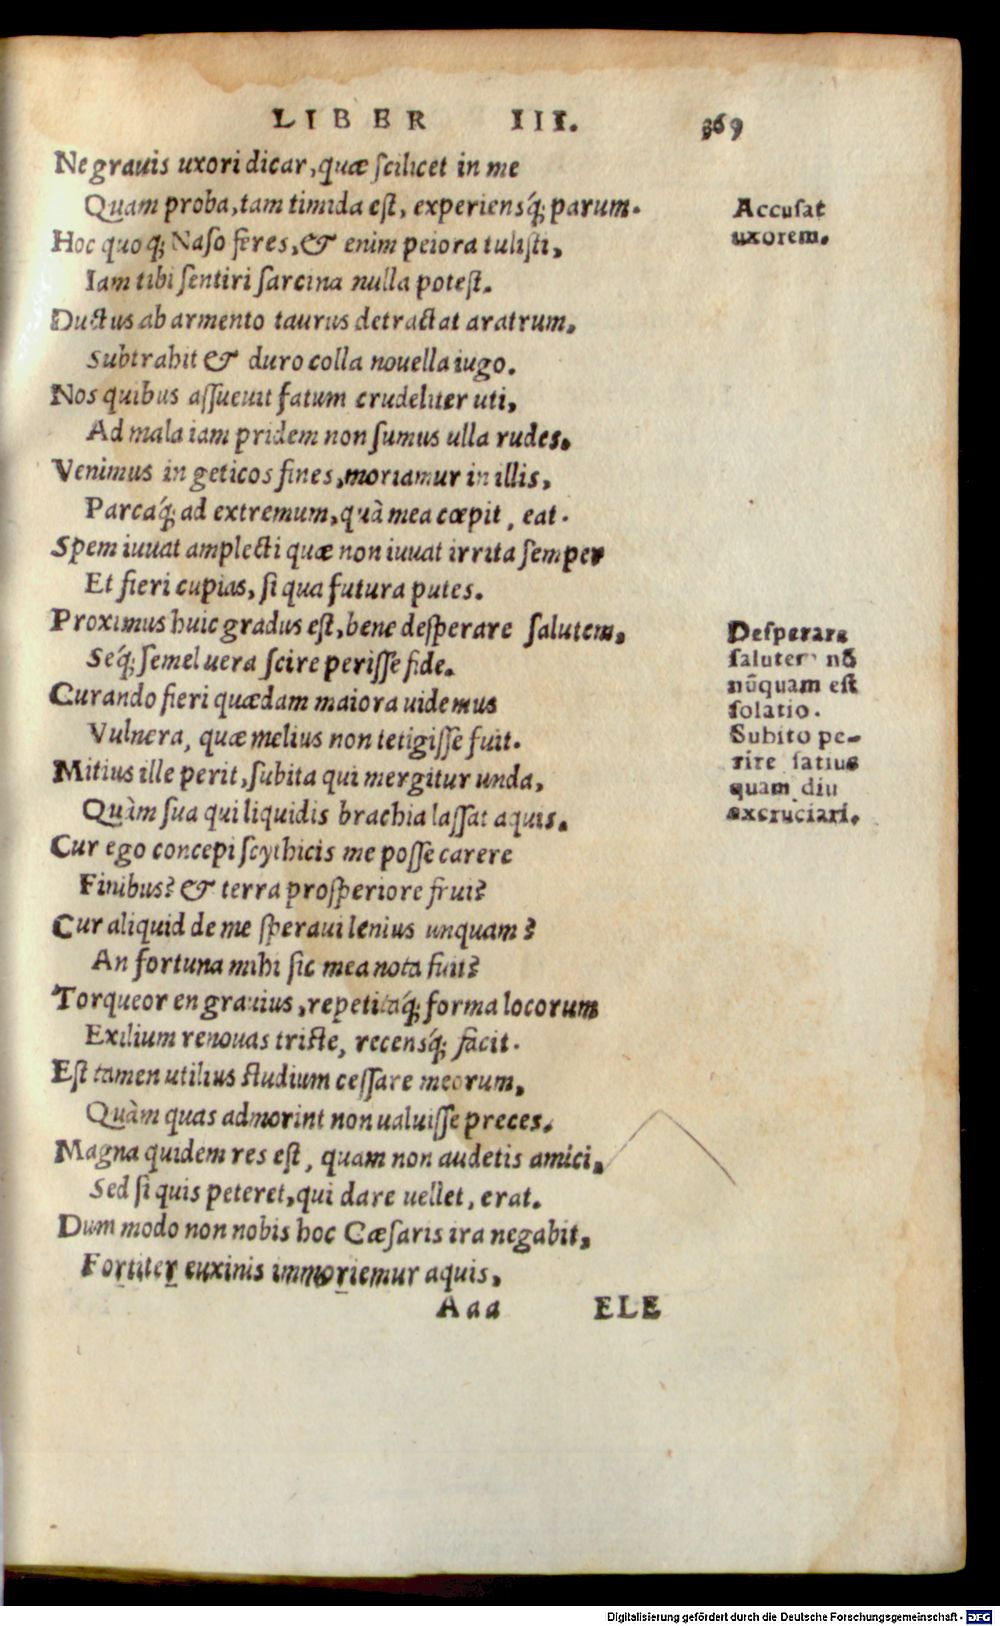 LIBER III. 369
Ne grauis uxori dicar, quæ scilicet in me
Quam proba, tam timida est, experiensq́; parum.
Accusat
uxorem.
Hoc quoq; Naso feres, & enim peiora tulisti,
Iam tibi sentiri sarcina nulla potest.
Ductus ab armento taurus detractat aratrum,
Subtrahit & duro colla nouella iugo.
Nos quibus assueuit fatum crudeliter uti,
Ad mala iam pridem non sumus ulla rudes.
Venimus in geticos fines, moriamur in illis,
Parcaq́; ad extremum, quà mea cœpit, eat.
Spem iuuat amplecti quæ non iuuat irrita semper
Et fieri cupias, si qua futura putes.
Proximus huic gradus est, bene desperare salutem,
Seq́; semel uera scire perisse fide.
Curando fieri quædam maiora uidemus
Vulnera, quæ melius non tetigisse fuit.
Mitius ille perit, subita qui mergitur unda,
Quàm sua qui liquidis brachia lassat aquis.
Desperare
salutem nō
nūquam est
solatio.
Subito pe-
rire satius
quam diu
excruciari.
Cur ego concepi scythicis me posse carere
Finibus? & terra prosperiore frui?
Cur aliquid de me speraui lenius unquam?
An fortuna mihi sic mea nota fuit?
Torqueor en grauius, repetitaq́; forma locorum
Exilium renouas triste, recensq́; facit.
Est tamen utilius studium cessare meorum,
Quàm quas admorint non ualuisse preces.
Magna quidem res est, quam non audetis amici,
Sed si quis peteret, qui dare uellet, erat.
Dum modo non nobis hoc Cæsaris ira negabit,
Fortiter euxinis immoriemur aquis.
Aaa ELE
Digitalisierung gefördert durch die Deutsche Forschungsgemeinschaft - DFG